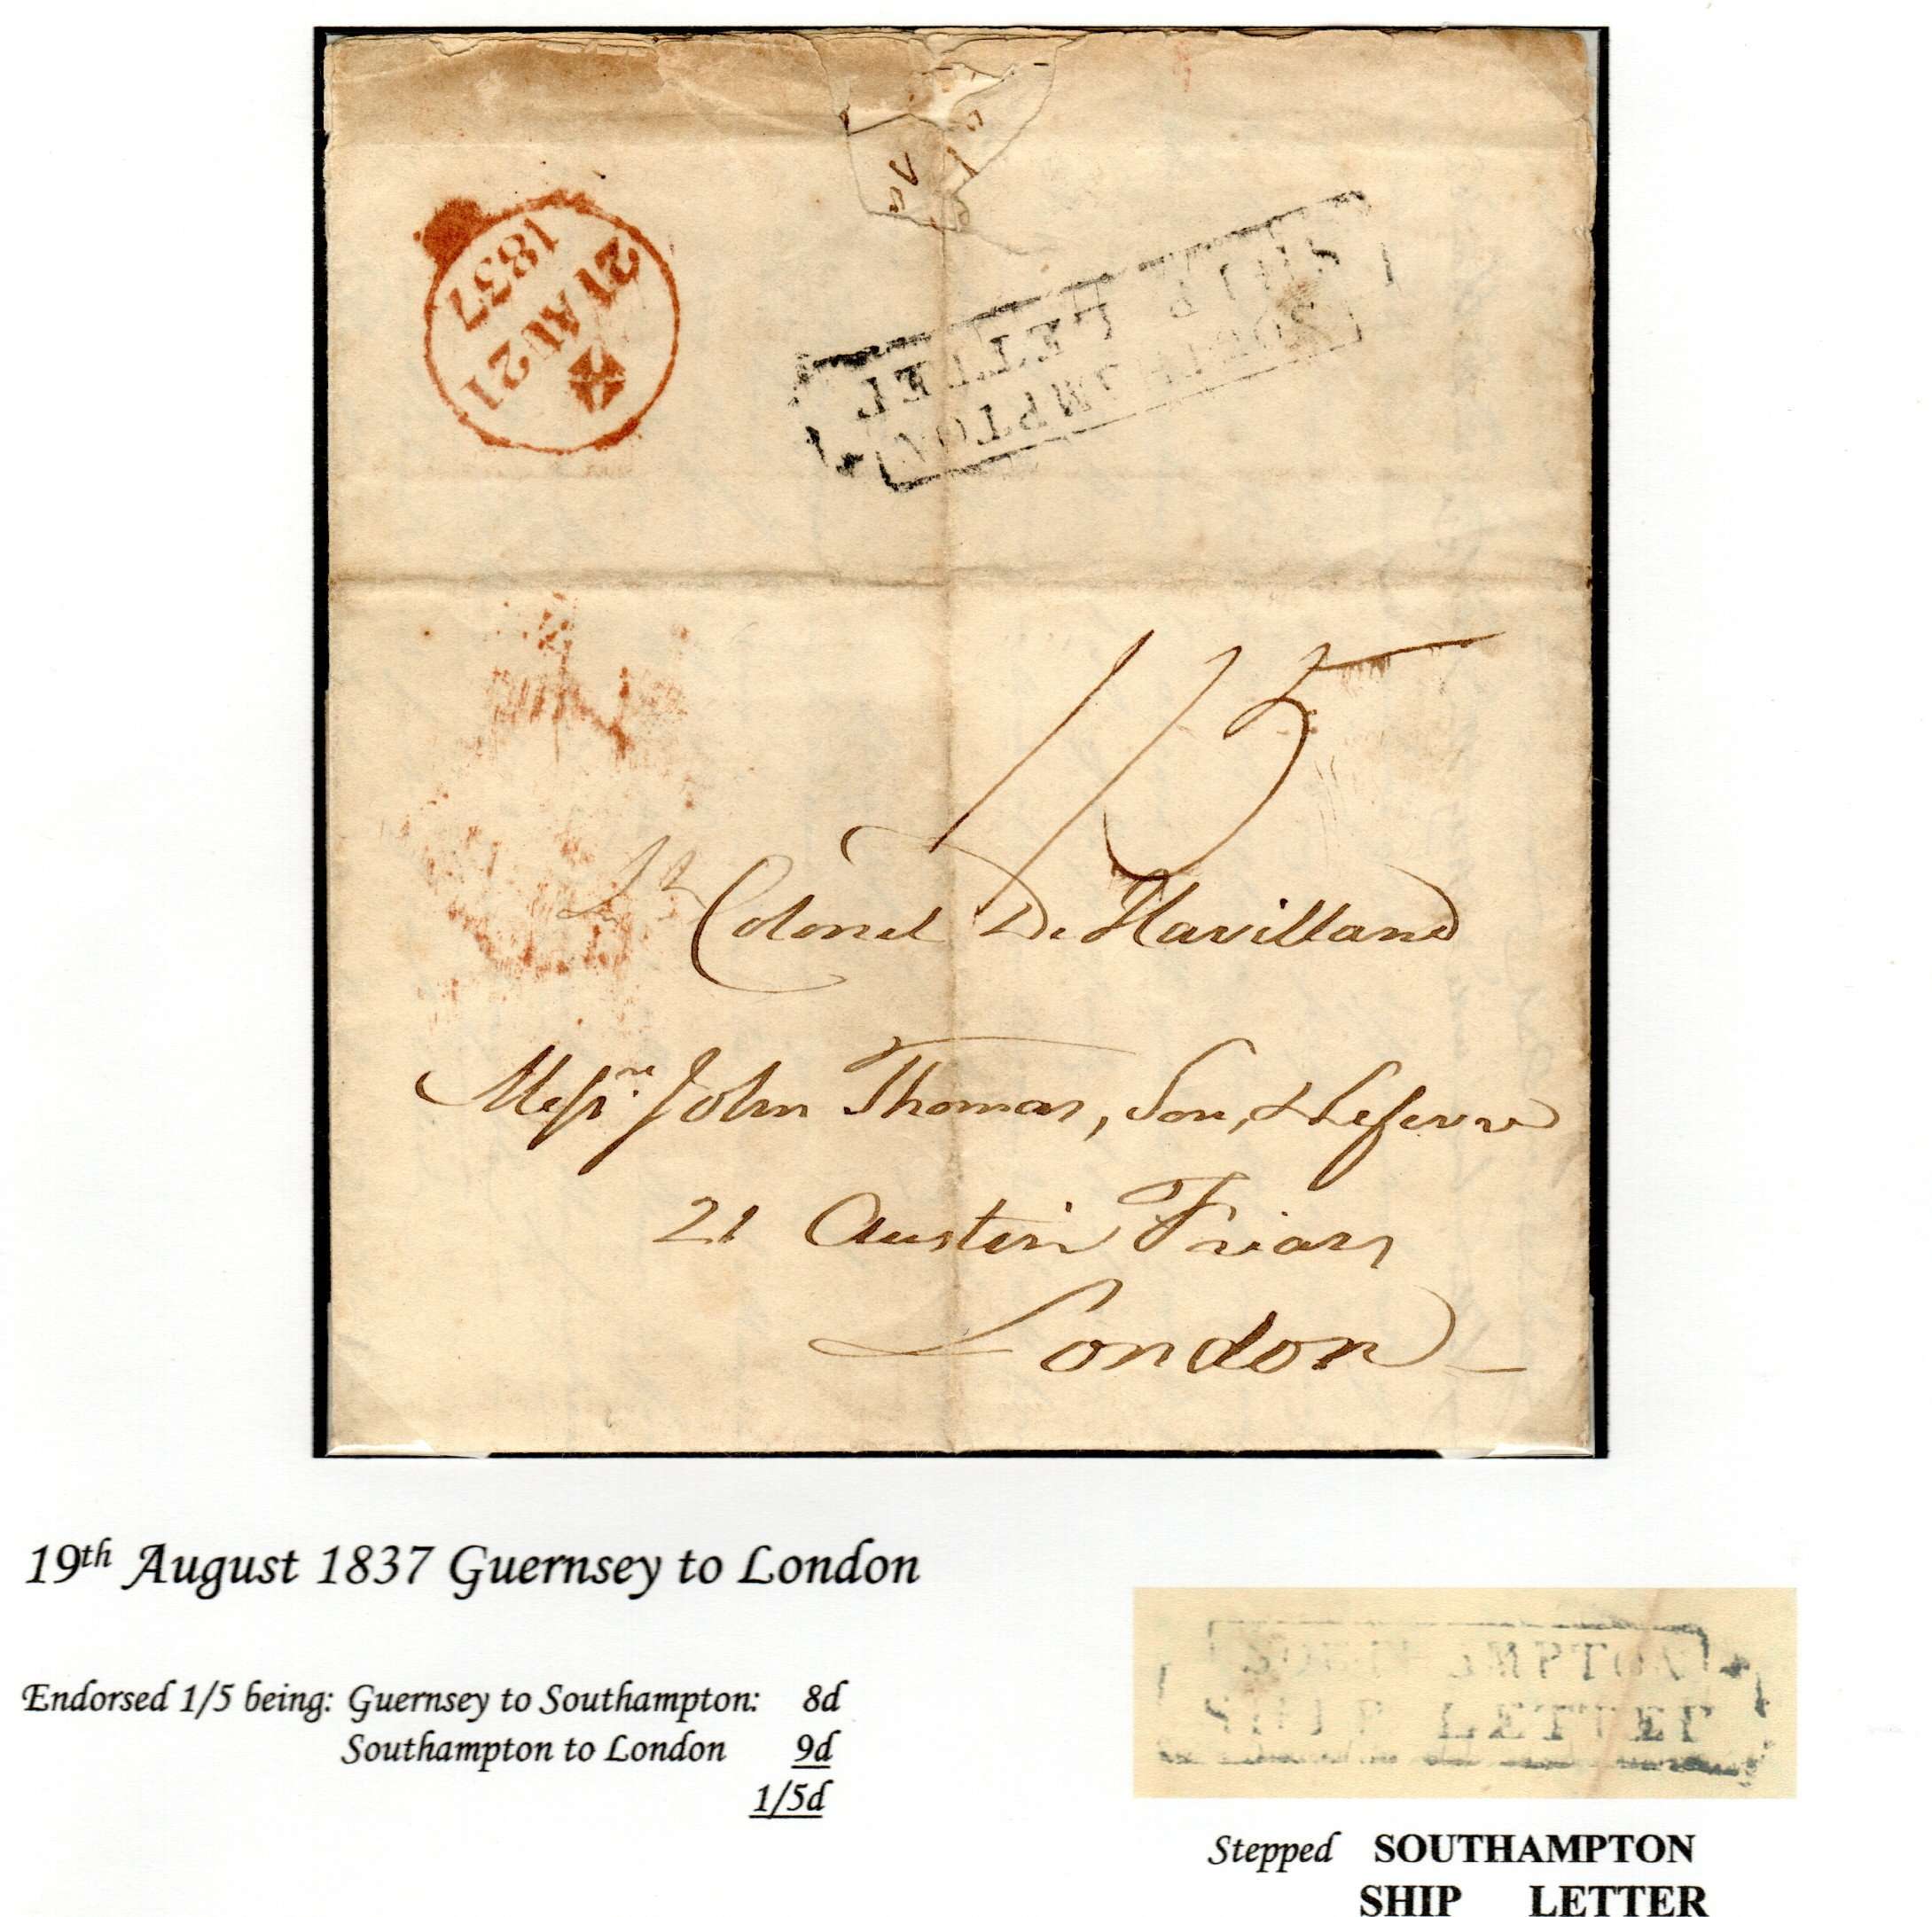 1837
21 AU 21
SHIP LETTER
SOUTHAMPTON
1/5
Lt Colonel De Havilland
Messrs John Thomas, Son, & Lefevre
21 Austin Friars
London
19th August 1837 Guernsey to London
Endorsed 1/5 being: Guernsey to Southampton: 8d
Southampton to London 9d
1/5d
SOUTHAMPTON
SHIP LETTER
Stepped SOUTHAMPTON
SHIP LETTER